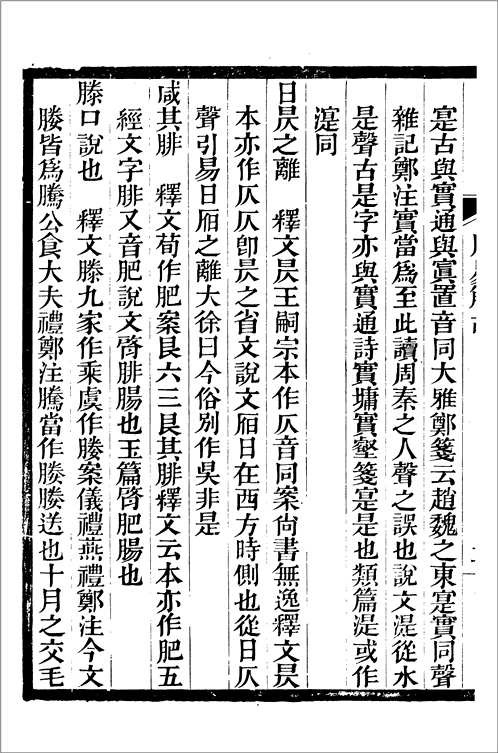 寔古與實通與寘置音同大雅鄭箋云趙魏之東寔實同聲
雜記鄭注實當爲至此讀周秦之人聲之誤也說文湜從水
是聲古是字亦與實通詩實墉實壑箋寔是也類篇湜或作
㵓同
日昃之離　釋文昃王嗣宗本作仄音同案尙書無逸釋文昃
本亦作仄仄卽昃之省文說文𣅔日在西方時側也從日仄
聲引易日𣅔之離大徐曰今俗別作昊非是
咸其腓　釋文荀作肥案艮六二艮其腓釋文云本亦作肥五
經文字腓又音肥說文腓脛腨也玉篇腓肥腸也
滕口說也　釋文滕九家作乘虞作媵案儀禮燕禮鄭注今文
媵皆爲騰公食大夫禮鄭注騰當作媵媵送也十月之交毛